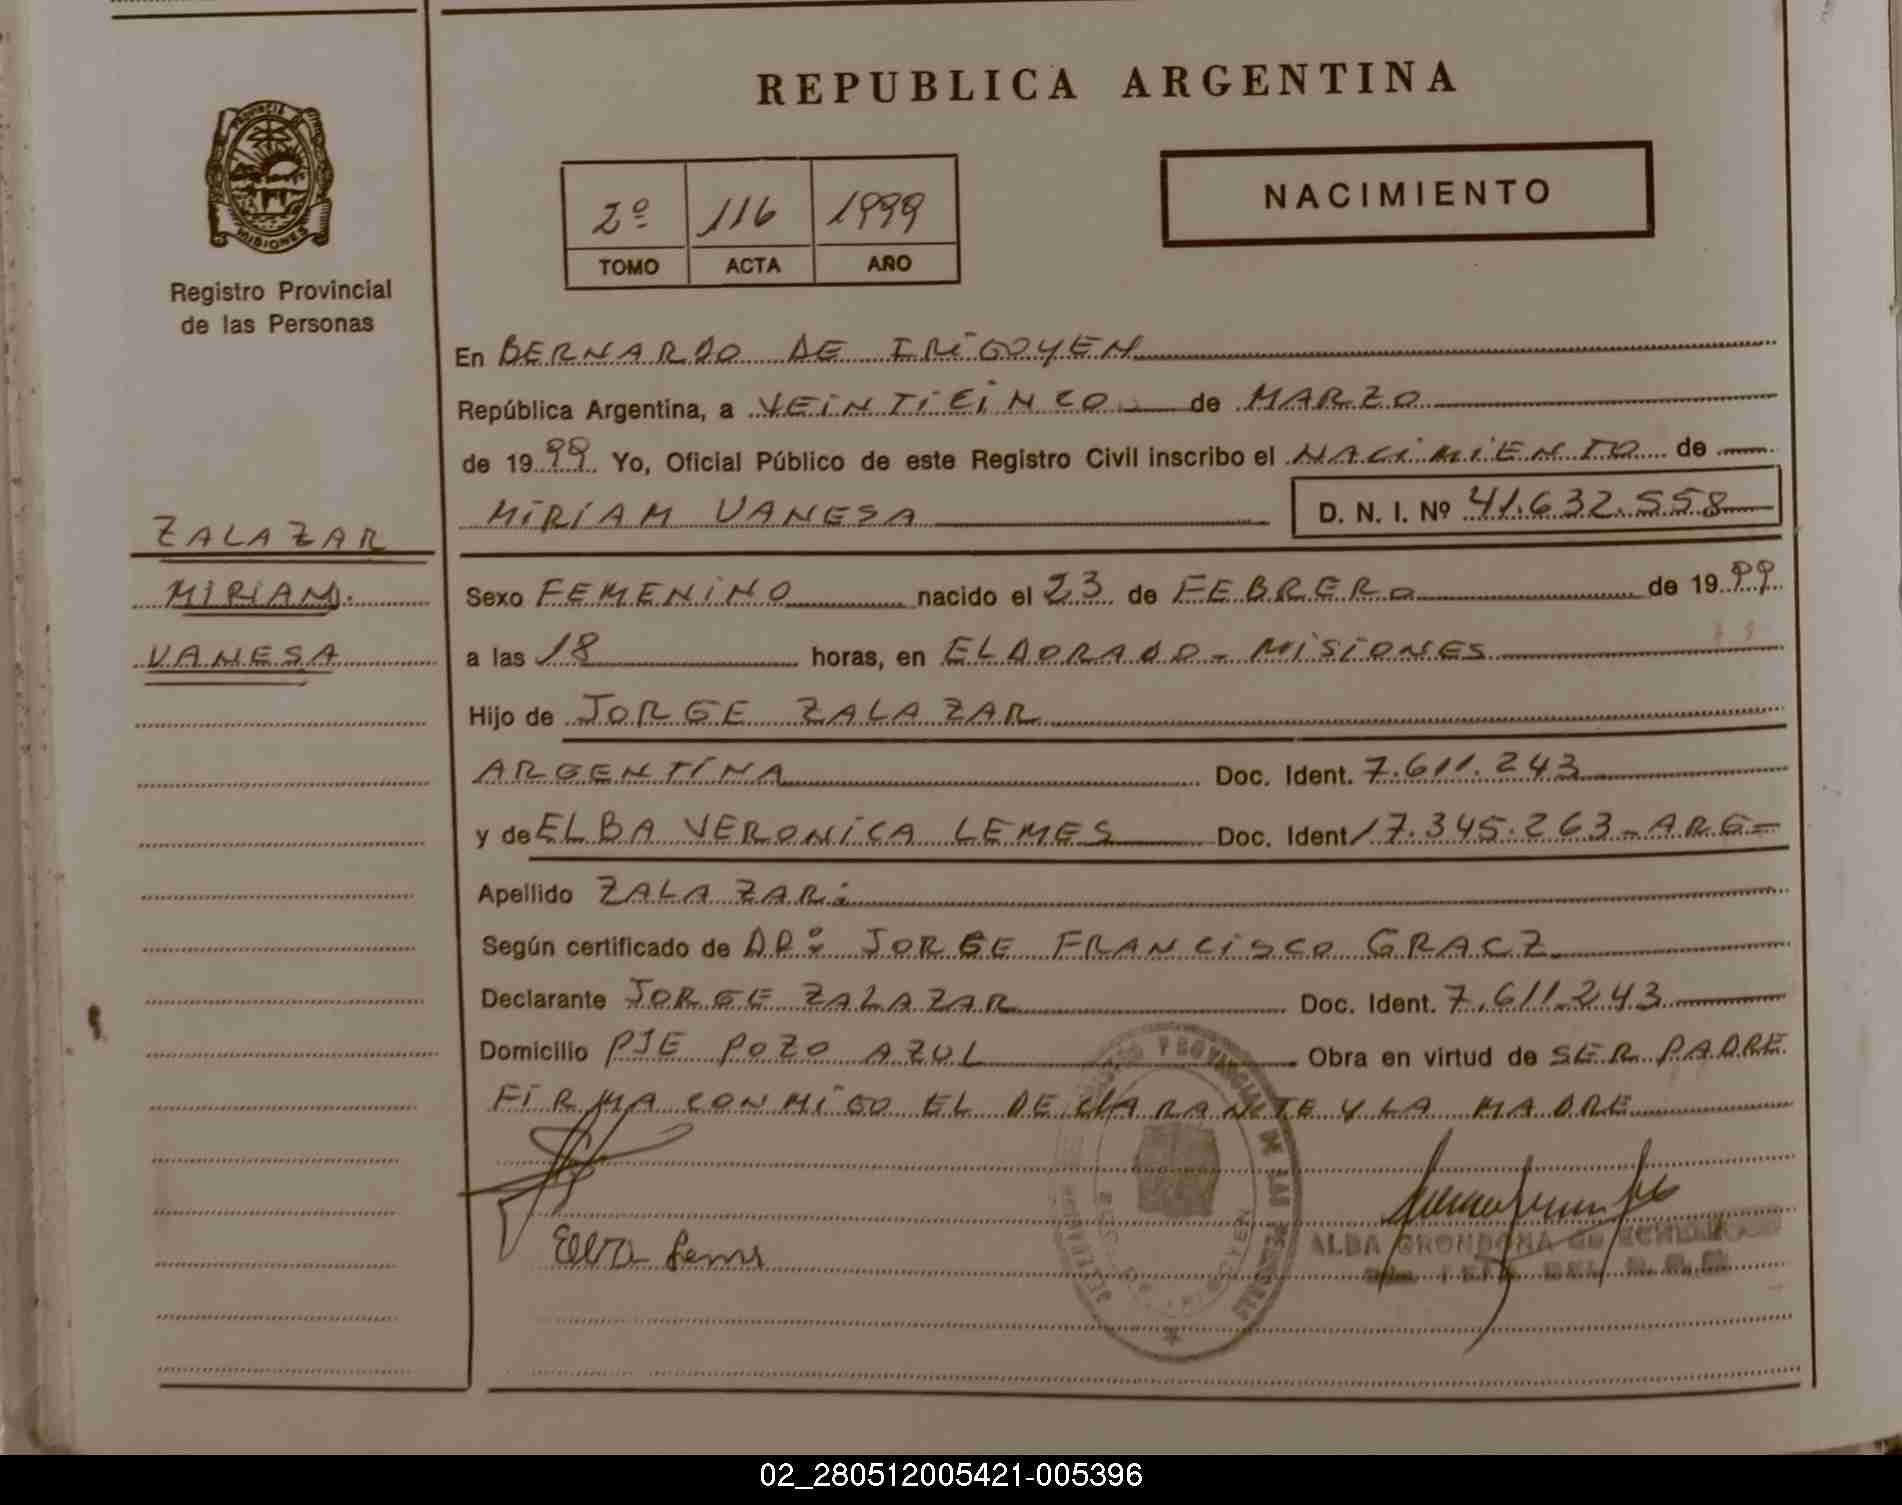 REPUBLICA ARGENTINA
PROVINCIA DE
MISIONES
Registro Provincial
de las Personas
2º 116 1999
TOMO ACTA AÑO
NACIMIENTO
En BERNARDO DE IRIGOYEN
República Argentina, a VEINTICINCO de MARZO
de 1999 Yo, Oficial Público de este Registro Civil inscribo el NACIMIENTO de
MIRIAM VANESA D. N. I. Nº 41.632.558
ZALAZAR
MIRIAM
VANESA
Sexo FEMENINO nacido el 23 de FEBRERO de 1999
a las 18 horas, en ELDORADO - MISIONES
Hijo de JORGE ZALAZAR
ARGENTINA Doc. Ident. 7.611.243
y de ELBA VERONICA LEMES Doc. Ident 17.345.263 - ARG=
Apellido ZALAZAR
Según certificado de DR: JORGE FRANCISCO GRACZ
Declarante JORGE ZALAZAR Doc. Ident. 7.611.243
Domicilio PJE POZO AZUL Obra en virtud de SER PADRE
FIRMA CONMIGO EL DECLARANTE Y LA MADRE
PROVINCIAL DE LAS PERSONAS
ALBA GRONDONA DE
02_280512005421-005396